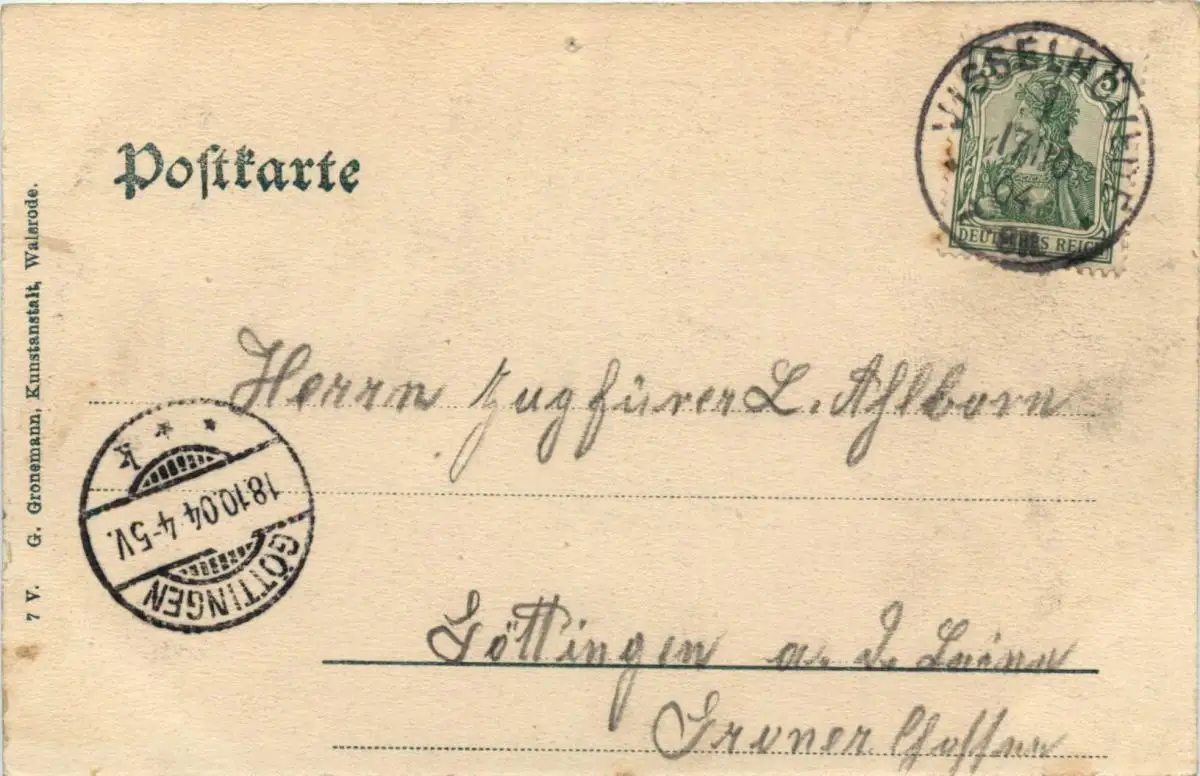 Postkarte
VISSELHÖVEDE
17/10
04
8N
5
DEUTSCHES REICH
Herrn Zugfürer L. Ahlborn
18.10.04 4-5V.
GÖTTINGEN
* * k
Göttingen a. d. Leine
Groner
7 V. G. Gronemann, Kunstanstalt, Walsrode.